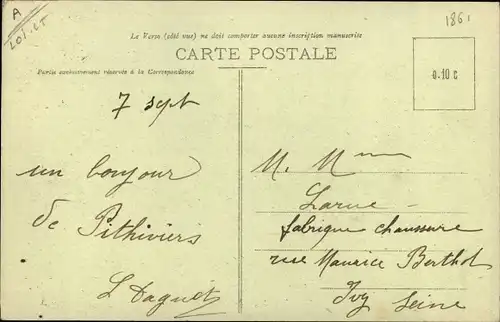 A
1861
Le Verso (côté vue) ne doit comporter aucune inscription manuscrite
CARTE POSTALE
Partie exclusivement réservée à la Correspondance
0.10 c
7 sept
un bonjour
de Pithiviers
L Daguet
M. Mme
Larue
fabrique chaussure
rue Maurice Berthot
Ivy Seine